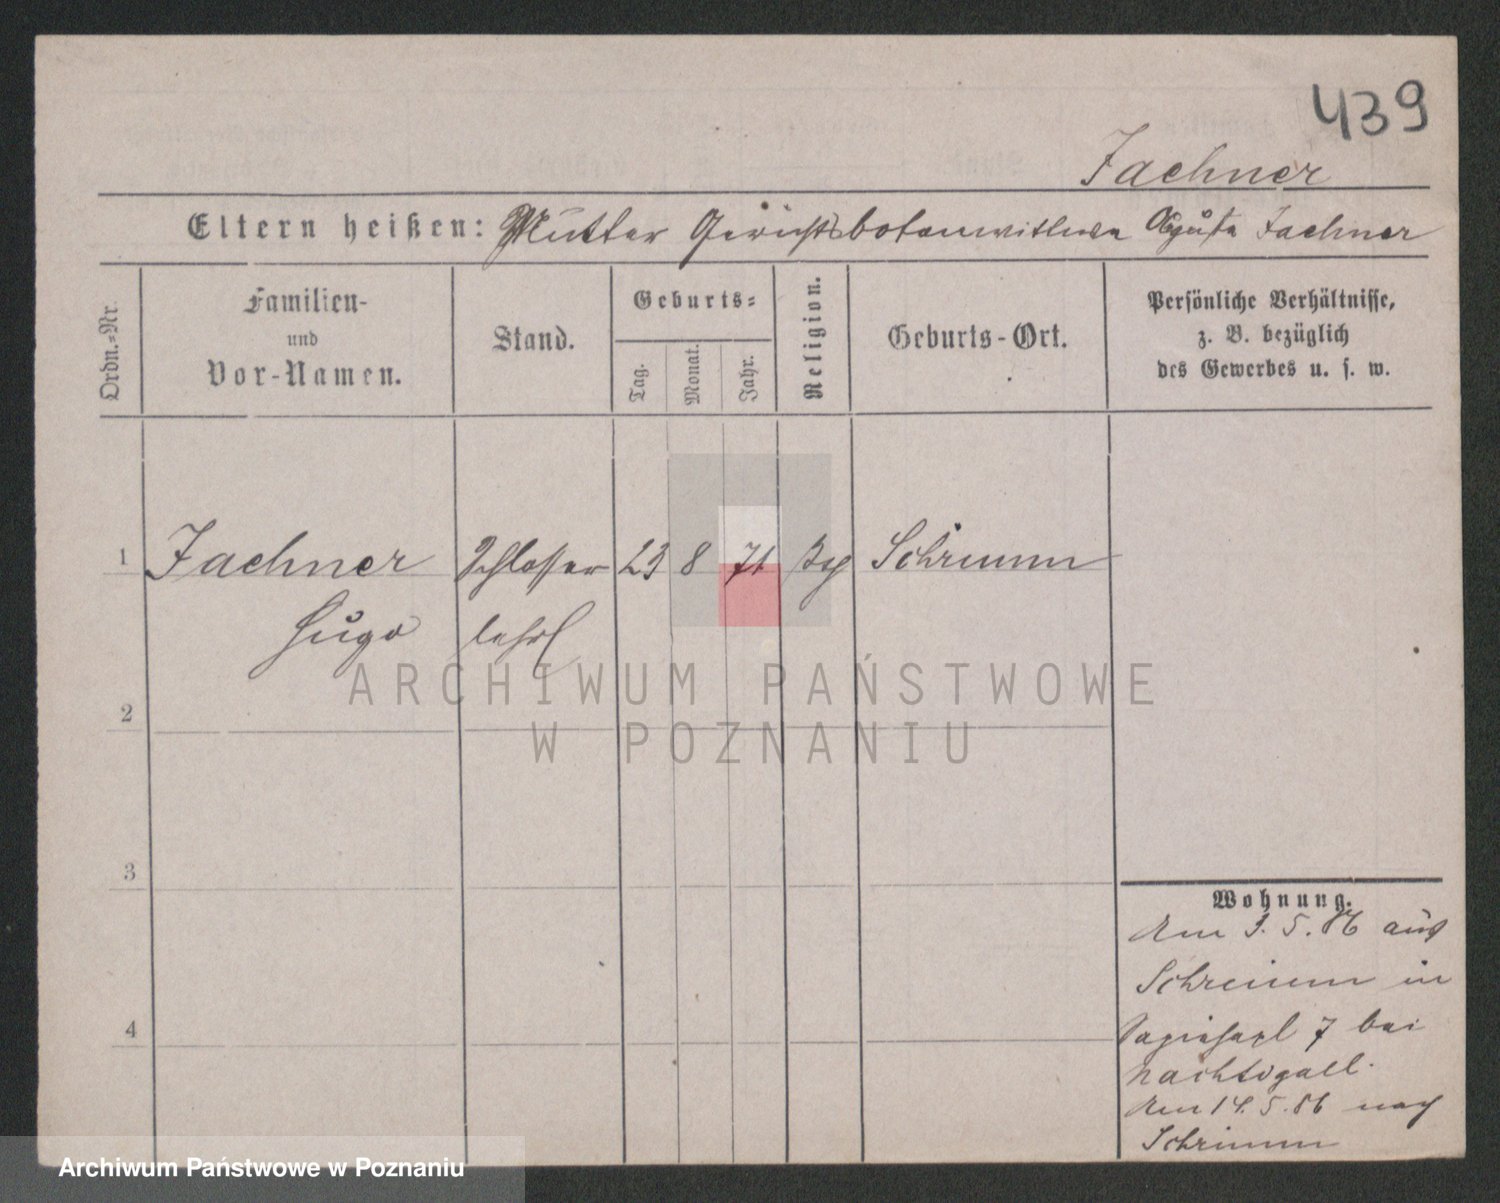 439
Jachner
Eltern heißen: Mutter Gerichtsbotenwittwe Auguste Jachner
Ordn.-Nr.
Familien-
und
Vor-Namen.
Stand.
Geburts-
Tag.
Monat.
Jahr.
Religion.
Geburts-Ort.
Persönliche Verhältnisse,
z. B. bezüglich
des Gewerbes u. s. w.
1 Jachner Schlosser 23 8 71 Schrimm
Hugo lehrl
2
3
4
Wohnung.
Am 3. 5. 86 aus
Schrimm in
7 bei
Nachtigall.
Am 14. 5. 86 nach
Schrimm
ARCHIWUM PAŃSTWOWE
W POZNANIU
Archiwum Państwowe w Poznaniu